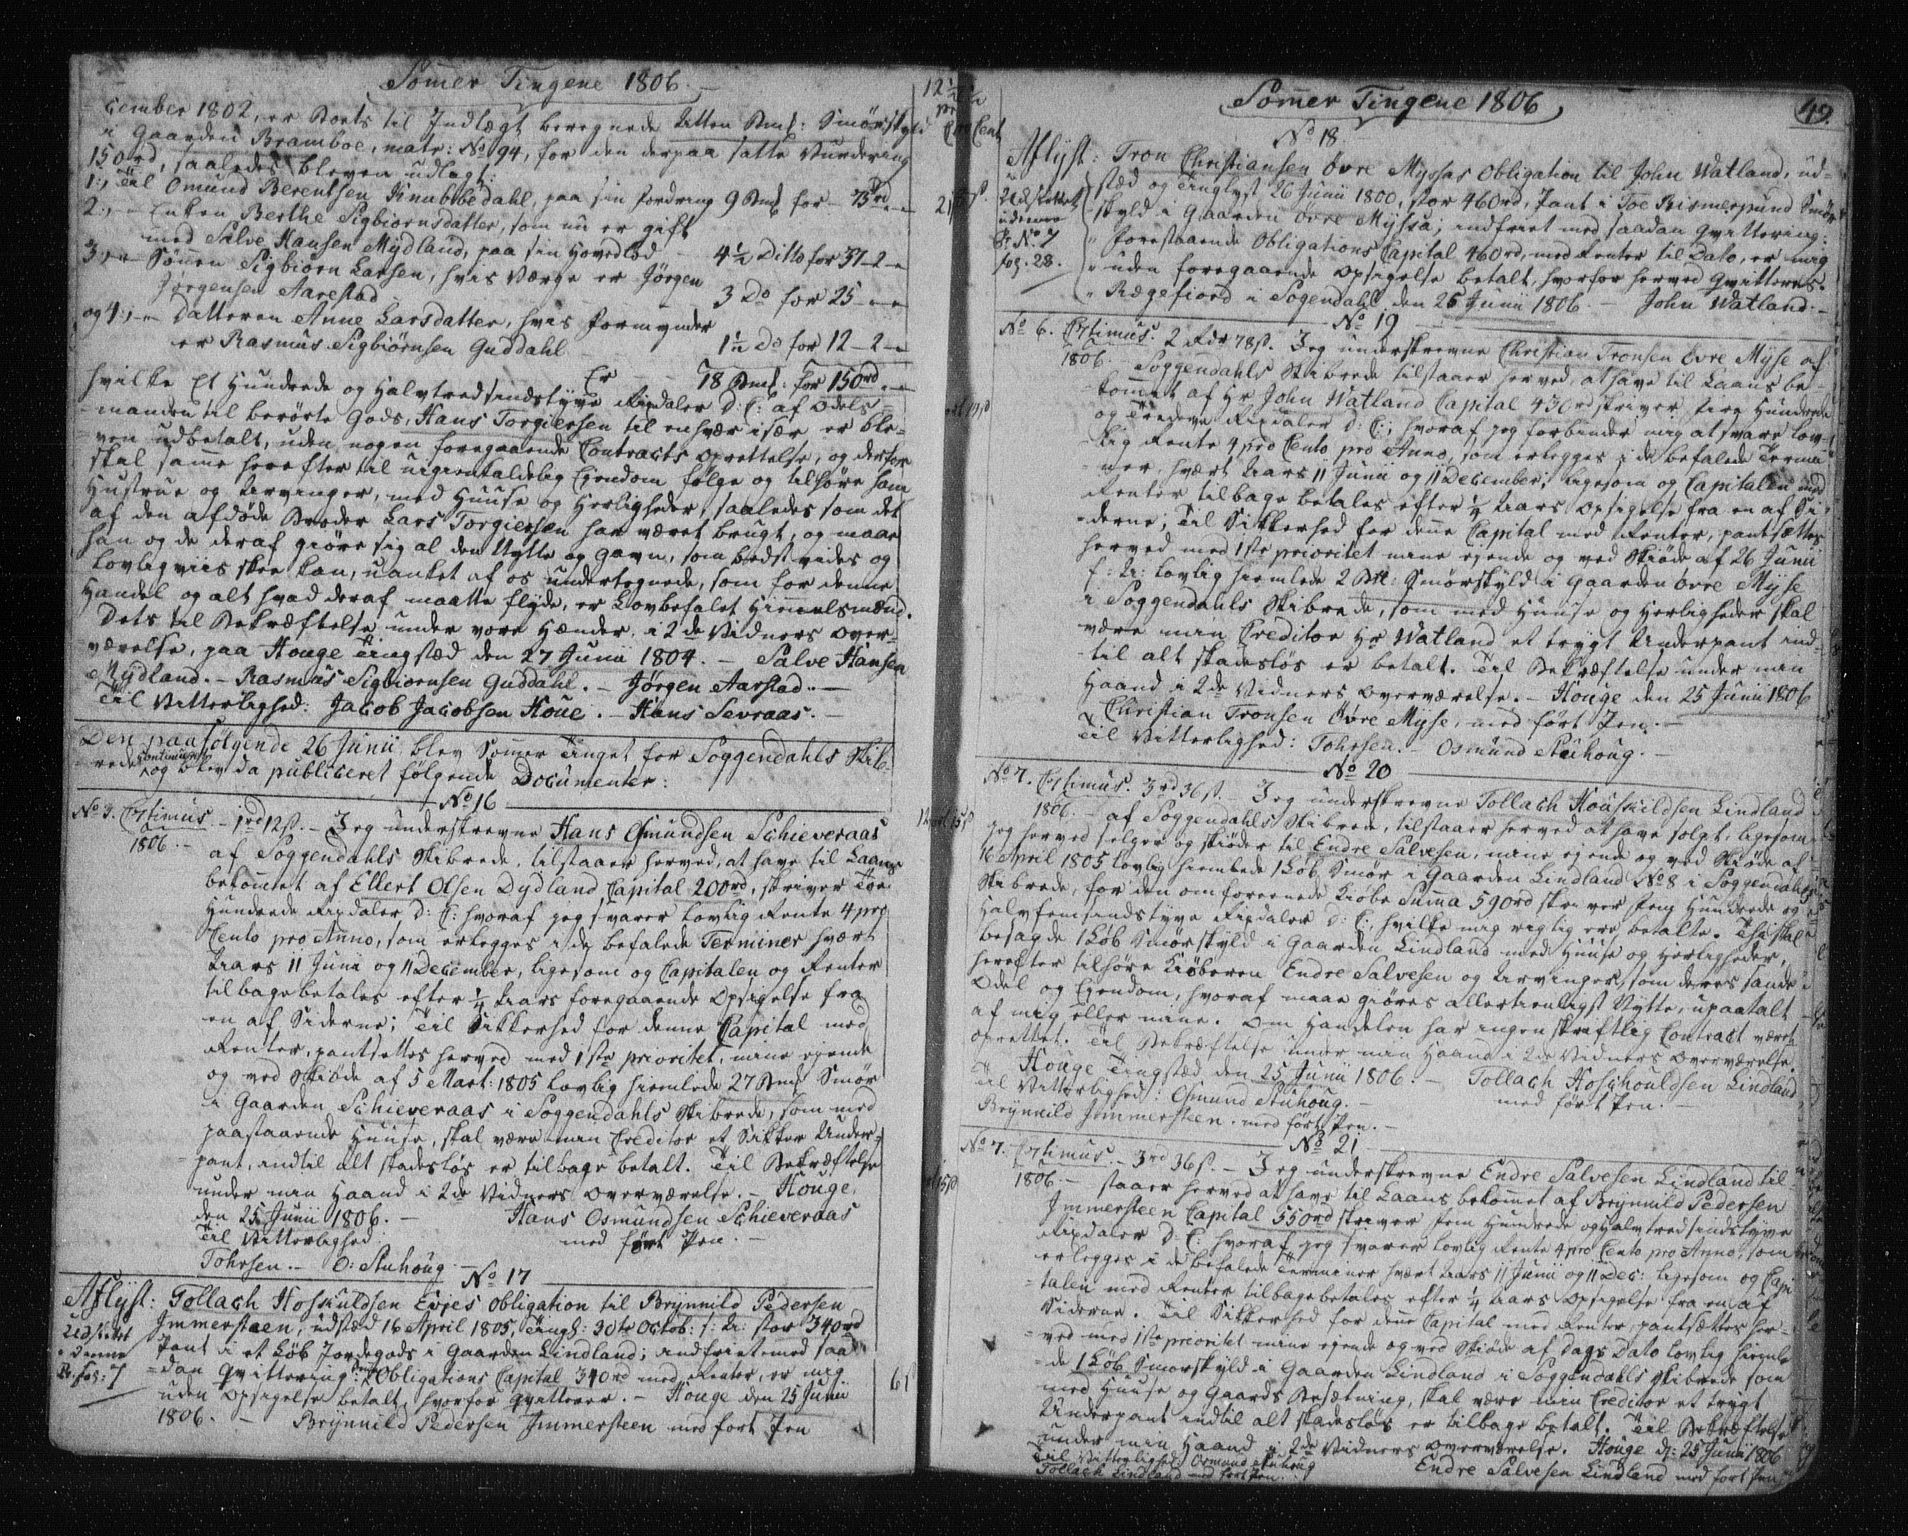 Sommer Tingene 1806.
cember 1802, er Boets til Indlægt beregnede Atten Bmf: Smørskyld
i Gaarden Bramboe, matr: No 94, for den derpaa satte Vurdering
150rd, saaledes bleven udlagt:
1:, Til Omund Berentsen Knubbedahl, paa sin fordring 9 Bmf for - 75rd - -
2:, - Enken Berthe Sigbiornsdatter, som nu er gift
med Salve Hansen Mydland, paa sin Hovedlod - 4½ Ditto for 37 - 2 -
3:, - Sønen Sigbiorn Larsen, hvis Værge er Jørgen
Jørgensen Aarestad 3 Do for 25 - - -
og 4:, - Datteren Anne Larsdatter, hvis formynder
er Rasmus Sigbiørnsen Guddahl - 1½ Do for 12 - 2 -
Er - - 18 Bmf: for 150rd. -
hvilke Et Hundrede og Halvtredsindstyve Rixdaler D: C: af Odels-
manden til berørte Gods, Hans Torgiersen til enhvær især er ble-
ven udbetalt, uden nogen foregaaende Contracts oprettelse, og derfor
skal samme herefter til uigienkaldelig Ejendom følge og tilhøre ham
Hustrue og Arvinger, med Huuse og Herligheder, saaledes som det
af den afdøde Broder Lars Torgiersen har været brugt, og maae
han og de deraf giøre sig al den Nytte og Gavn, som bedst vides og
Lovligviis skee kan, uanket af os undertegnede, som for denne
Handel og alt hvad deraf maatte flyde, er Lovbefalet Himmelsmænd.
Dets til Bekræftelse under vore Hænder i 2de Vidners Over-
værelse, paa Houge Tingstæd den 27 Junii 1804. - Salve Hansen
Mydland. - Rasmus Sigbiornsen Guddahl. - Jørgen Aarstad. -
Til Vitterlighed: Jacob Jacobsen Houe. - Hans Sevraas. -
Den paafølgende 26 Junii blev Sommer Tinget for Soggendahls Skib-
rede continueret og blev da publiceret følgende Documenter:
No 16
No 3. 1806. - 1rd 12s. - Jeg underskrevne Hans Osmundsen Schieveraas
af Soggendahls Skibrede, tilstaaer herved, at have til Laans
bekommet af Ellert Olsen Dydland Capital 200rd, skriver Toe
Hundrede Rixdaler D: C: hvoraf jeg svarer lovlig Rente 4 pro
Cento pro Anno, som erlegges i de befalede Terminer hvært
Aars 11 Junii og 11 December, ligesom og Capitalen og Renter
tilbagebetales efter ¼ Aars foregaaende Opsigelse fra
en af Siderne; Til Sikkerhed for denne Capital med
Renter, pantsettes herved med 1ste prioritet, mine ejende
og ved Skiøde af 5 Mart: 1805 lovlig hiemlede 27 Bmf Smør
i Gaarden Schieveraas i Soggendahls Skibrede, som med
paastaaende Huuse, skal være min Creditor et Sikker Under-
pant, indtil alt skadesløs er tilbage betalt. Til Bekræftelse
under min Haand i 2de Vidners Overværelse. - Houge,
den 25 Junii 1806. - Hans Osmundsen Schieveraas
Til Vitterlighed: med ført Pen. -
Tohrsen. - O: Stuhoug
No 17
Aflyst: Tollach Hosskuldsen Evjes Obligation til Brynnild Pedersen
Immersteen, udstæd 16 April 1805, Tingl: 30te Octob: s: A: stor 340rd
Pant i et Løb Jordegods i Gaarden Lindland; indfriet med saa-
dan Qvittering: Obligations Capital 340rd med Renter, er mig
uden Opsigelse betalt, hvorfor qvitterer. - Houge den 25 Junii
1806. - Brynnild Pedersen Immersteen med ført Pen
Sommer Tingene 1806
49.
No 18.
Aflyst: Tron Christiansen Øvre Myssas Obligation til John Watland, ud-
stæd og Tinglyst 26 Junii 1800, stor 460rd, Pant i Toe Bismerpund Smør-
skyld i Gaarden Øvre Myssa; indfriet med saadan Qvittering:
" forestaaende Obligations Capital 460rd, med Renter til Dato, er mig
" uden foregaaende Opsigelse betalt, hvorfor herved Qvitteres.
" Rægefiord i Sogendahl den 25 Junii 1806 - John Watland. -
fol. 28.
No 19
No 6. 1806. 2 Rdr 78s. Jeg underskrevne Christian Tronsen Øvre Myse af
Soggendahls Skibrede tilstaaer herved, at have til Laans be-
kommet af Hr John Watland Capital 430rd skriver fire Hundrede
og Tredeve Rixdaler D: C:, hvoraf jeg forbinder mig at svare lov-
lig Rente 4 pro Cento pro Anno, som erlegges i de befalede Termi-
ner, hvært Aars 11 Junii og 11 December; ligesom og Capitalen med
Renter tilbage betales efter ¼ Aars Opsigelse fra en af Si-
derne; Til Sikkerhed for denne Capital med Renter, pantsættes
herved med 1ste prioritet mine ejende og ved Skiøde af 26 Junii
s: A: lovlig hiemlede 2 Smørskyld i Gaarden Øvre Myse
i Soggendahls Skibrede, som med Huuse og Herligheder skal
være min Creditor Hr Watland et trygt Underpant ind-
til alt skadesløs er betalt. Til Bekræftelse under min
Haand i 2de Vidners Overværelse. - Houge den 25 Junii 1806
Christian Tronsen Øvre Myse, med ført Pen. -
Til Vitterlighed: Tohrsen. - Osmund Stuhoug. -
No 20
No 7. 1806. 3rd 36s. - Jeg underskrevne Tollach Houskuldsen Lindland
af Soggendahls Skibrede, tilstaaer herved at have solgt, ligesom
jeg herved selger og skiøder til Endre Salvesen, mine ejende og ved Skiøde af
16 April 1805 lovlig hiemlede 1 Løb Smør i Gaarden Lindland No 8 i Soggendahls
Skibrede, for den omforenede Kiøbe Summa 590rd skriver fem Hundrede og
Halvfemsindstyve Rixdaler D: C: hvilke mig rigtig ere betalte. Thi skal
besagde 1 Løb Smørskyld i Gaarden Lindland med Huuse og Herligheder,
herefter tilhøre Kiøberen Endre Salvesen og Arvinger, som deres sande
Odel og Ejendom, hvoraf maae giøres allertienligst Nytte, upaatalt
af mig eller mine. Om Handelen har ingen skriftlig Contract været
oprettet. Til Bekræftelse under min Haand i 2de Vidners Overværelse.
Houge Tingstæd den 25 Junii 1806. - Tollach Hoschouldsen Lindland
Til Vitterlighed: Osmund Stuhoug. - med ført Pen. -
Brynnild Immersteen. med ført Pen. -
No 21
No 7. 1806. - 3rd 36s. - Jeg underskrevne Endre Salvesen Lindland til-
staaer herved at have til Laans bekommet af Brynnild Pedersen
Immersteen Capital 550rd skriver fem Hundrede og Halvtredsindstyve
Rixdaler D: C: hvoraf jeg svarer lovlig Rente 4 pro Cento pro Anno, som
erlegges i de befalede Terminer hvært Aars 11 Junii og 11 Dec: ligesom og Capi-
talen med Renter tilbagebetales efter ¼ Aars Opsigelse fra en af
Siderne. Til Sikkerhed for denne Capital med Renter, pantsættes her-
ved med 1ste prioritet mine ejende og ved Skiøde af Dags Dato lovlig hiemle-
de 1 Løb Smørskyld i Gaarden Lindland i Soggendahls Skibrede som
med Huuse og Gaards Besætning, skal være min Creditor et trygt
Underpant indtil alt skadesløs er tilbage betalt. Til Bekræftelse
under min Haand i 2de Vidners Overværelse. Houge d: 25 Junii 1806
Til Vitterlighed Osmund Stuhoug Endre Salvesen Lindland med ført Pen
Tollach Lindland med ført Pen.